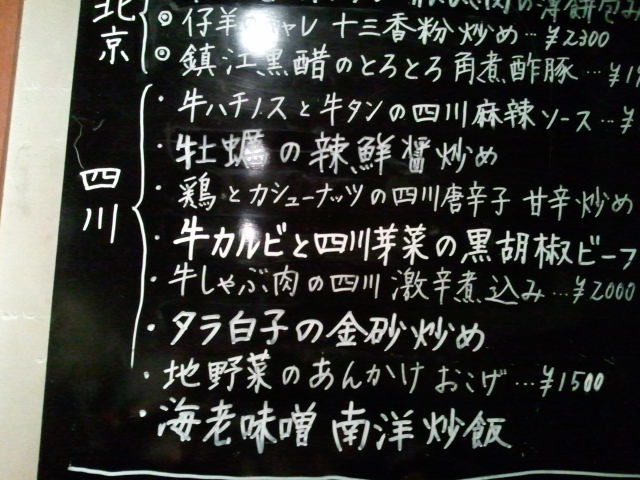 北京
の薄餅包み
◎仔羊 十三香粉炒め…¥2300
◎鎮江黒醋のとろとろ角煮酢豚…¥
四川
・牛ハチノスと牛タンの四川麻辣ソース…¥
・牡蠣の辣鮮醤炒め
・鶏とカシューナッツの四川唐辛子 甘辛炒め
・牛カルビと四川芽菜の黒胡椒ビーフ
・牛しゃぶ肉の四川 激辛煮込み…¥2000
・タラ白子の金砂炒め
・地野菜のあんかけおこげ…¥1500
・海老味噌 南洋炒飯